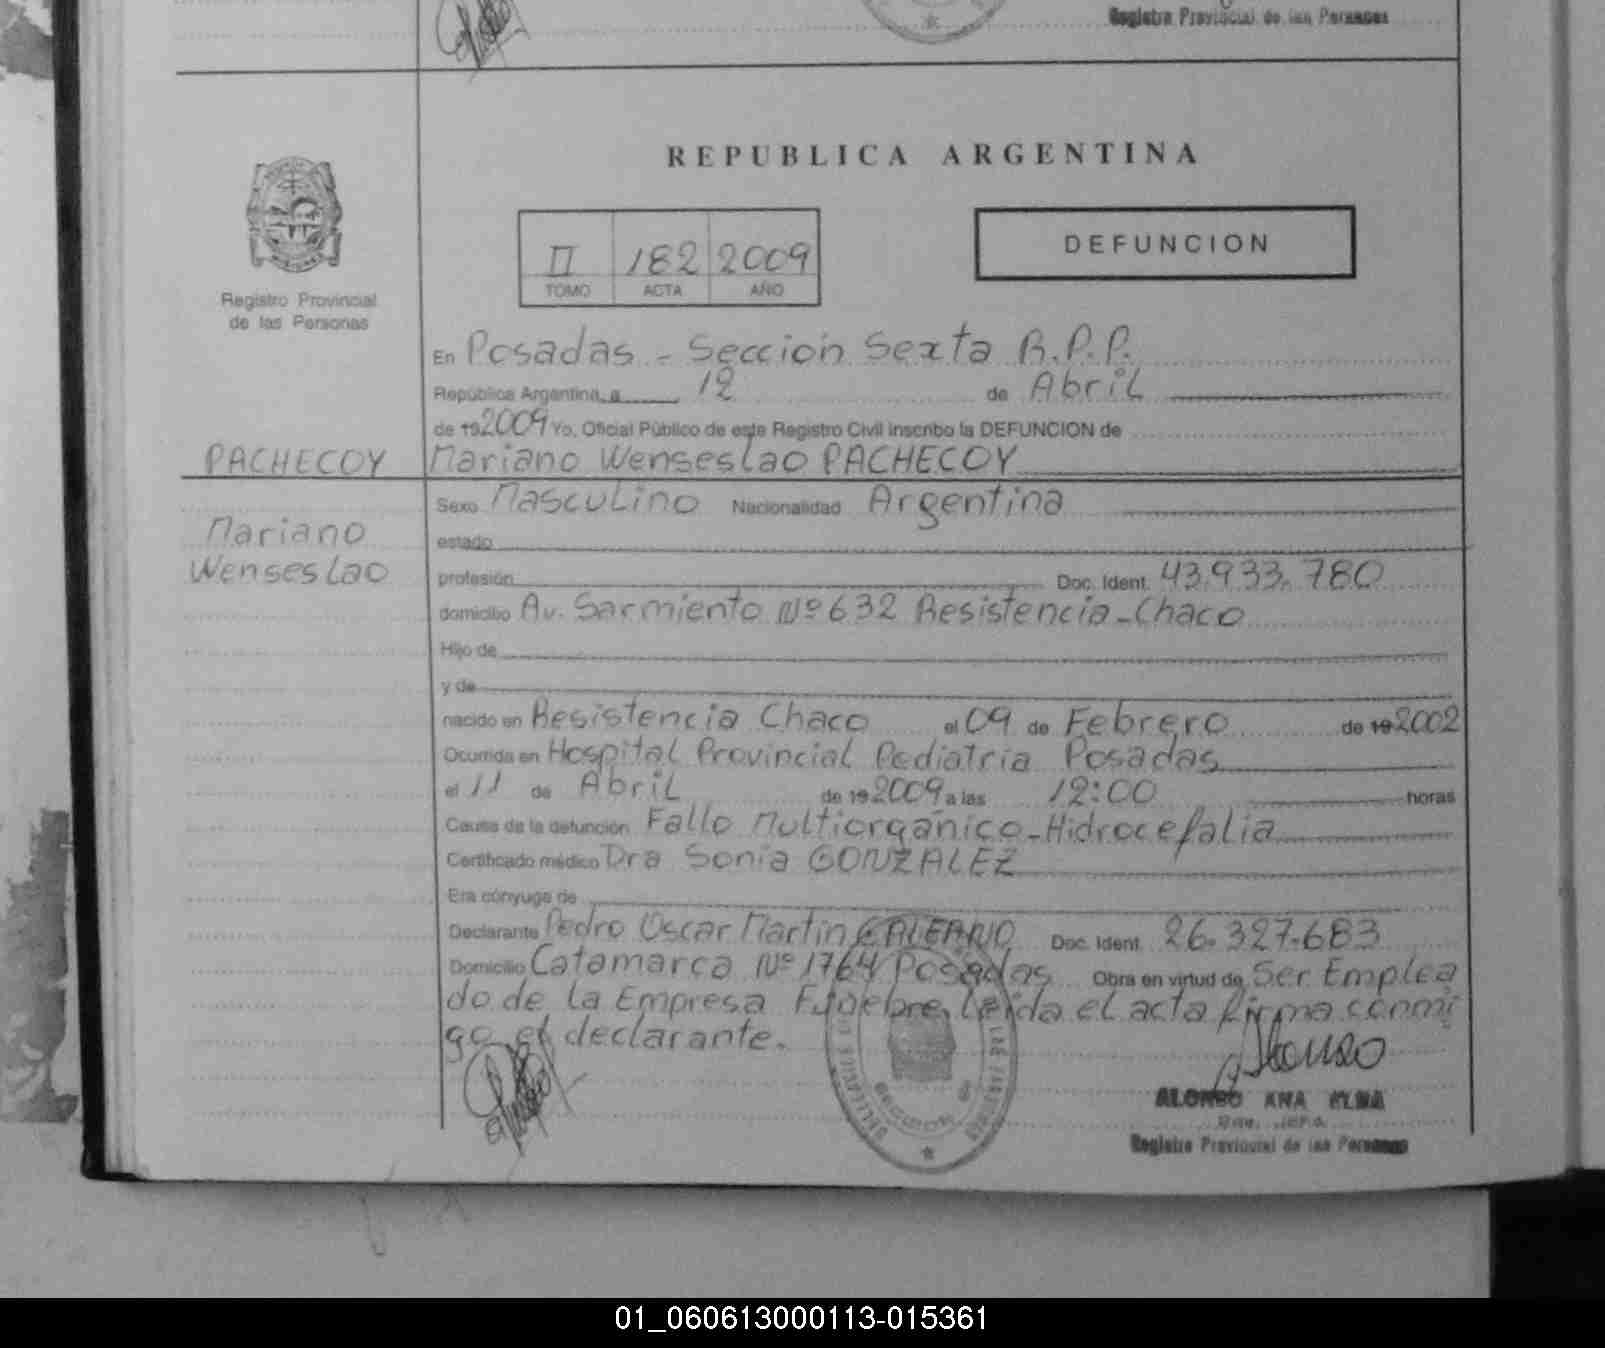 Registro Provincial de las Personas
REPUBLICA ARGENTINA
II 182 2009
TOMO ACTA AÑO
DEFUNCION
Registro Provincial
de las Personas
En Posadas - Sección Sexta R.P.P.
República Argentina, a 12 de Abril
de 192009 Yo, Oficial Público de este Registro Civil inscribo la DEFUNCION de
PACHECOY
Mariano Wenseslao PACHECOY
Mariano
Wenseslao
Sexo Masculino Nacionalidad Argentina
estado
profesión Doc. Ident. 43.933.780
domicilio Av. Sarmiento Nº 632 Resistencia-Chaco
Hijo de
y de
nacido en Resistencia Chaco el 09 de Febrero de 192002
Ocurrida en Hospital Provincial Pediatria Posadas
el 11 de Abril de 192009 a las 12:00 horas
Causa de la defunción Fallo Multiorgánico-Hidrocefalia
Certificado médico Dra Sonia GONZALEZ
Era cónyuge de
Declarante Pedro Oscar Martin GALEANO Doc. Ident. 26.327.683
Domicilio Catamarca Nº 1764 Posadas Obra en virtud de Ser Emplea
do de la Empresa Funebre, Leida el acta firma conmi
go el declarante.
Alonso
ALONSO ANA ELBA
Registro Provincial de las Personas
01_060613000113-015361